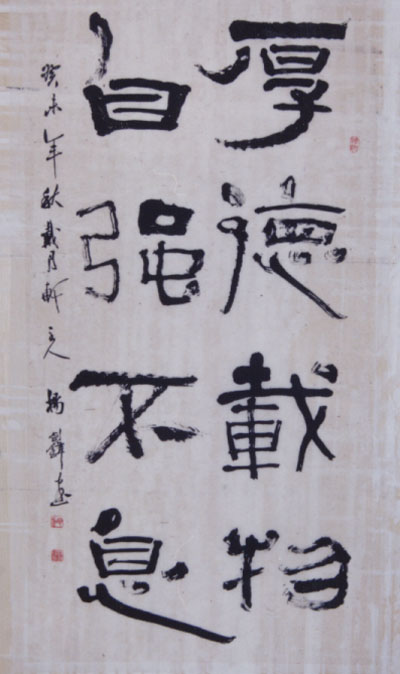 厚德載物
自强不息
癸未年秋戴月軒主人